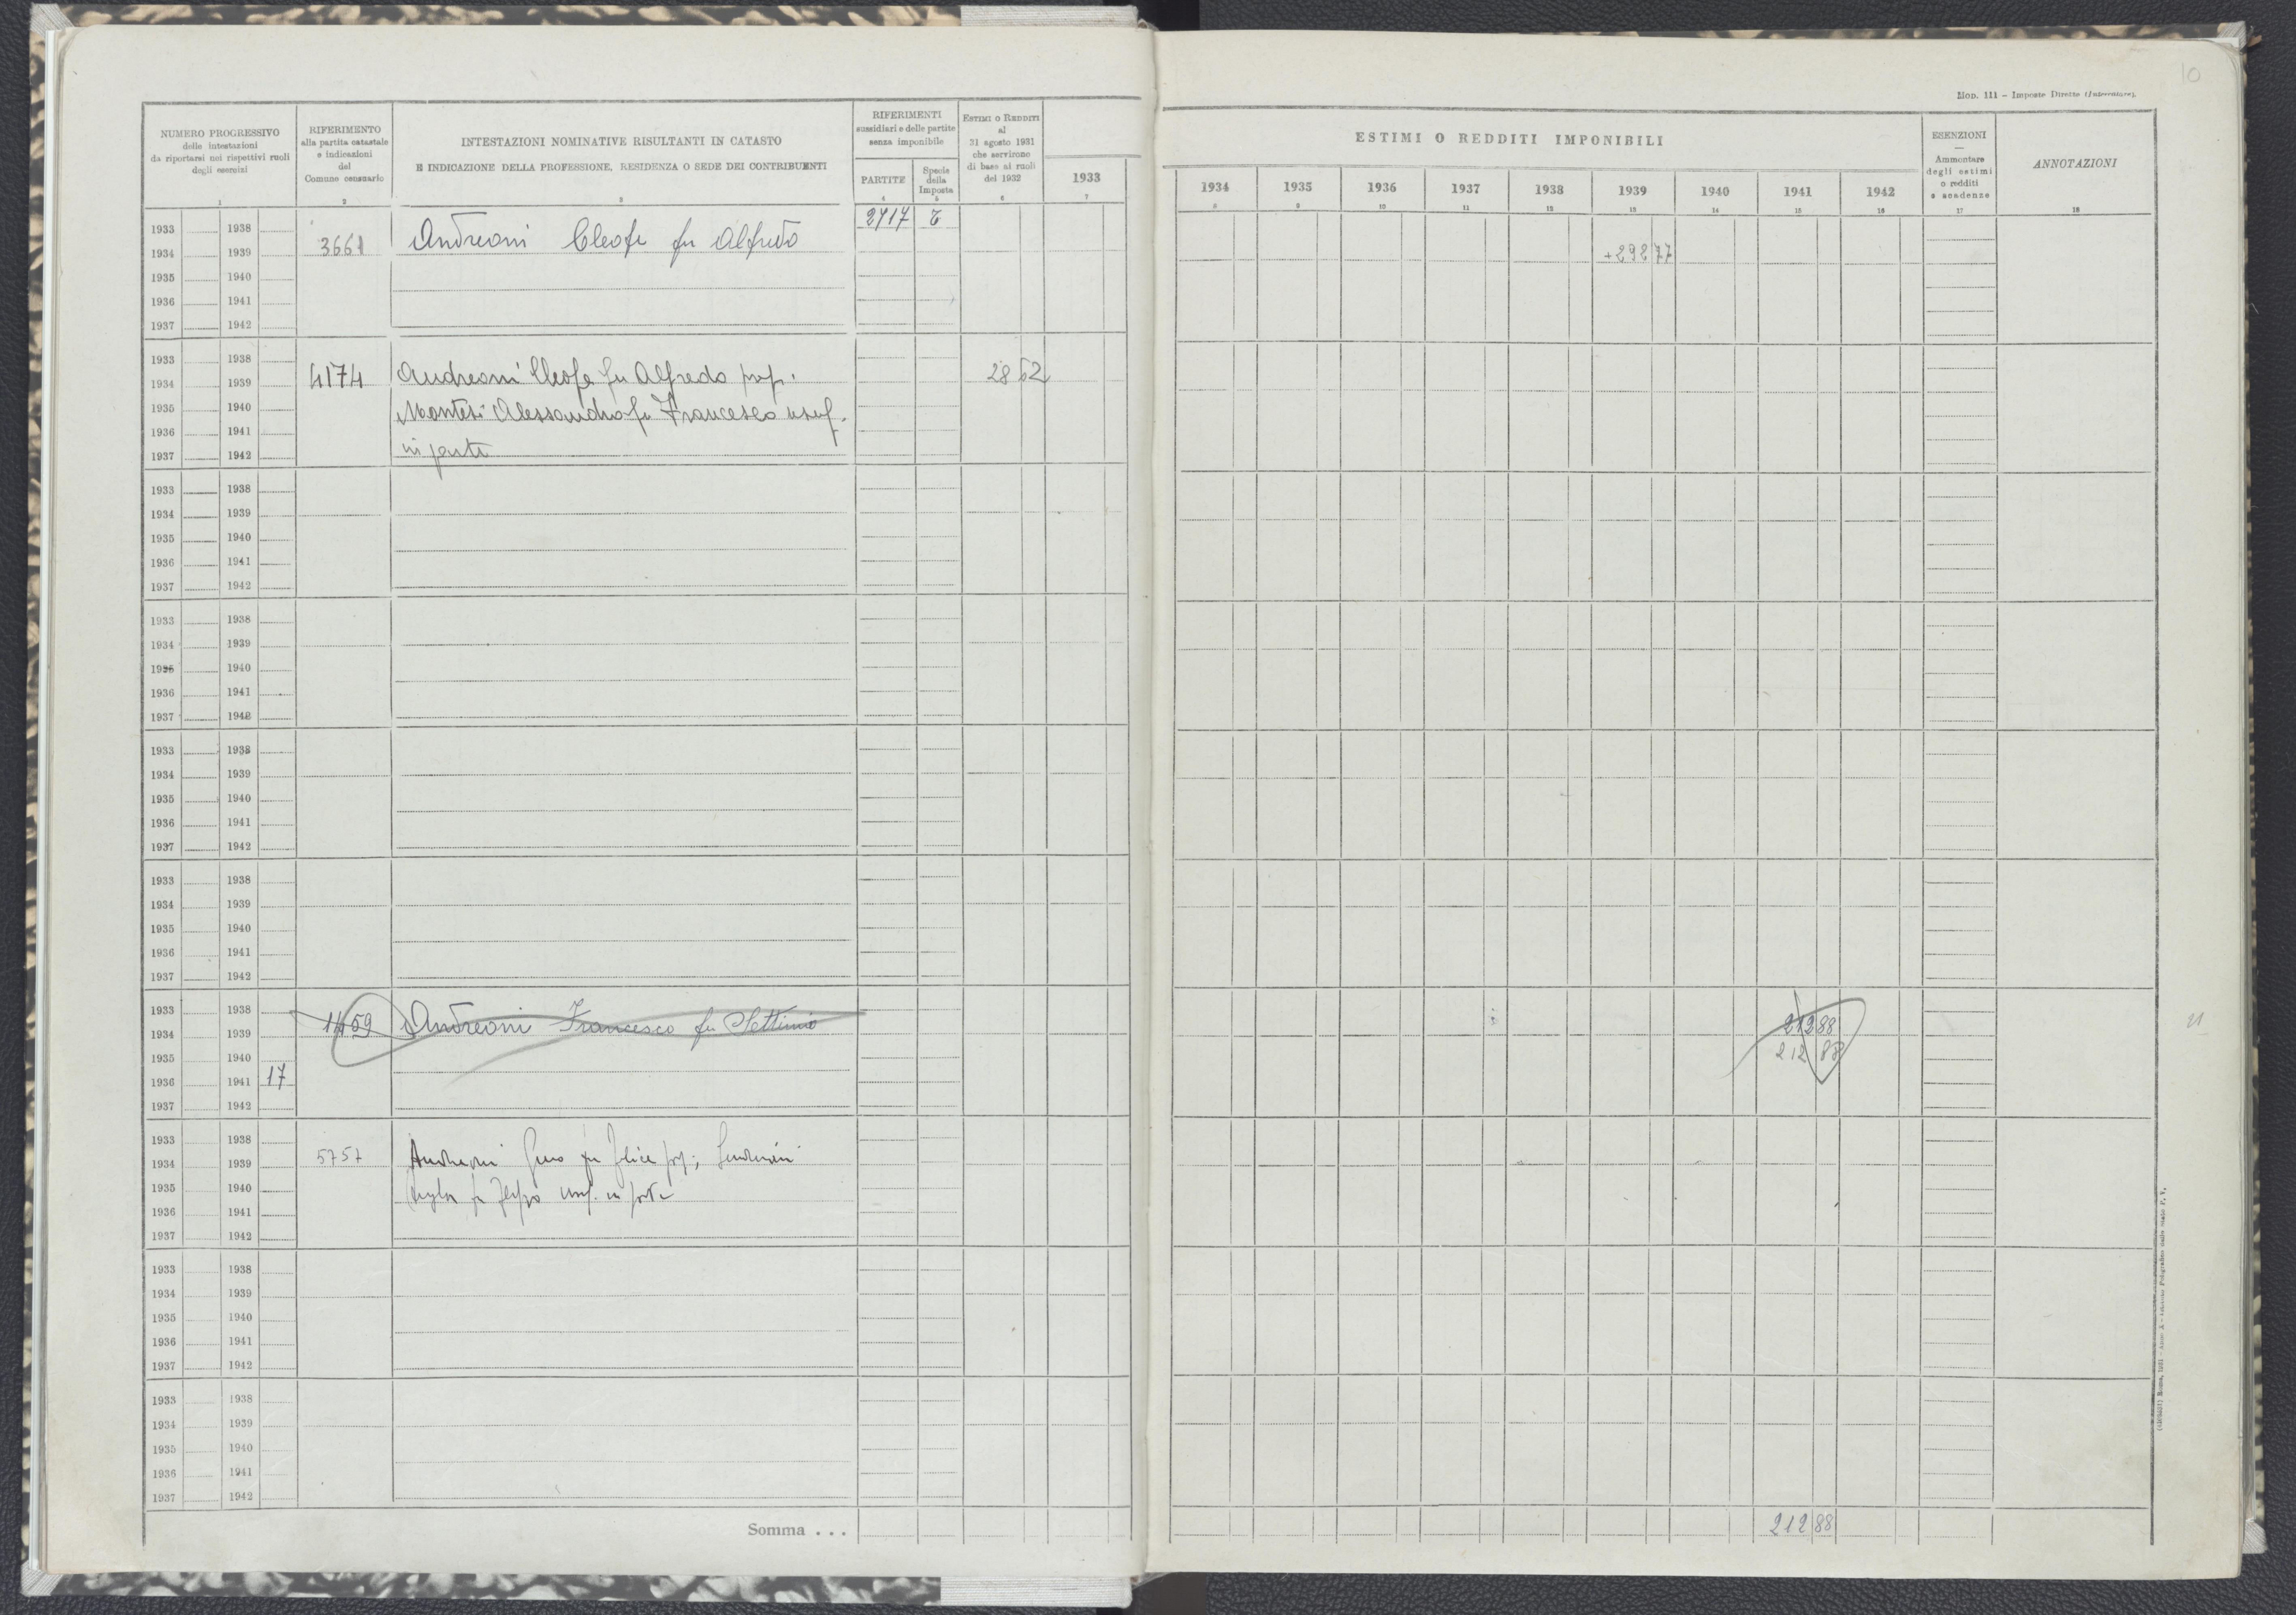 10
Mod. 111 – Imposte Dirette (Intercalare).
NUMERO PROGRESSIVO
delle intestazioni
da riportarsi nei rispettivi ruoli
degli esercizi
1
RIFERIMENTO
alla partita catastale
e indicazioni
del
Comune censuario
2
INTESTAZIONI NOMINATIVE RISULTANTI IN CATASTO
E INDICAZIONE DELLA PROFESSIONE, RESIDENZA O SEDE DEI CONTRIBUENTI
3
RIFERIMENTI
sussidiari e delle partite
senza imponibile
PARTITE
4
Specie
della
Imposta
5
ESTIMI O REDDITI
al
31 agosto 1931
che servirono
di base ai ruoli
del 1932
6
1933
7
ESTIMI O REDDITI IMPONIBILI
1934 1935 1936 1937 1938 1939 1940 1941 1942
8 9 10 11 12 13 14 15 16
ESENZIONI
—
Ammontare
degli estimi
o redditi
e scadenze
17
ANNOTAZIONI
18
1933 1938 2717 T
1934 1939 3661 Andreoni Cleofe fu Alfredo +292 77
1935 1940
1936 1941
1937 1942
1933 1938
1934 1939 4174 Andreoni Cleofe fu Alfredo prop. 28 62
1935 1940 Montesi Alessandro fu Francesco usuf.
1936 1941
1937 1942 in parte
1933 1938
1934 1939
1935 1940
1936 1941
1937 1942
1933 1938
1934 1939
1935 1940
1936 1941
1937 1942
1933 1938
1934 1939
1935 1940
1936 1941
1937 1942
1933 1938
1934 1939
1935 1940
1936 1941
1937 1942
1933 1938
1934 1939 59 Andreoni Francesco fu Settimio 212 88
1935 1940 212 88
1936 1941 17
1937 1942
1933 1938
1934 1939 5757 Andreoni fu Felice prop;
1935 1940 fu usuf. in parte
1936 1941
1937 1942
1933 1938
1934 1939
1935 1940
1936 1941
1937 1942
1933 1938
1934 1939
1935 1940
1936 1941
1937 1942
Somma . . . 212 88